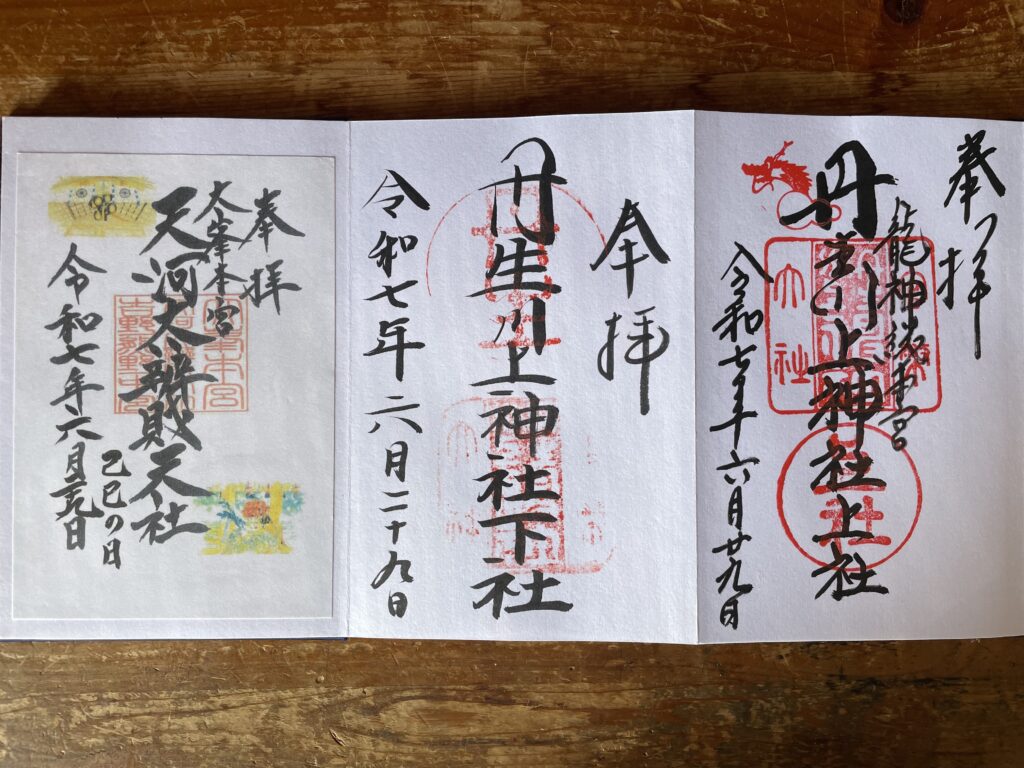 奉拝
龍神総本宮
丹生川上神社上社
大社
令和七年六月廿九日
奉拝
丹生川上神社下社
令和七年六月二十九日
奉拝
大峯本宮
天河大辨財天社
己巳の日
令和七年六月二十九日